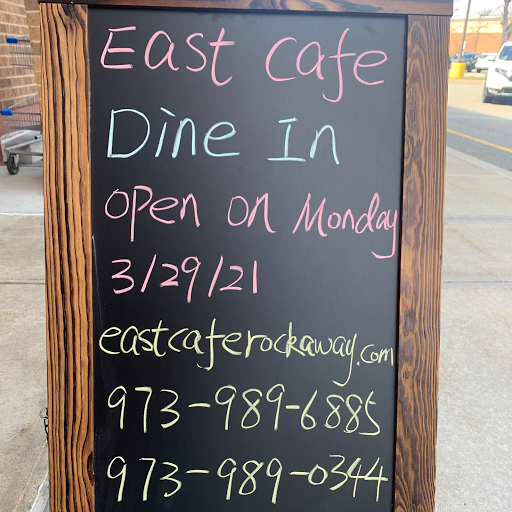 East Cafe
Dine In
Open on Monday
3/29/21
eastcaferockaway.com
973-989-6885
973-989-0344